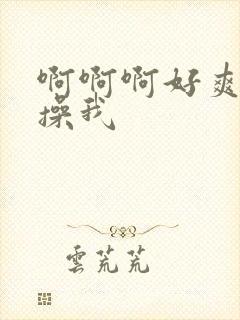 啊啊啊好爽
操我
雲荒荒